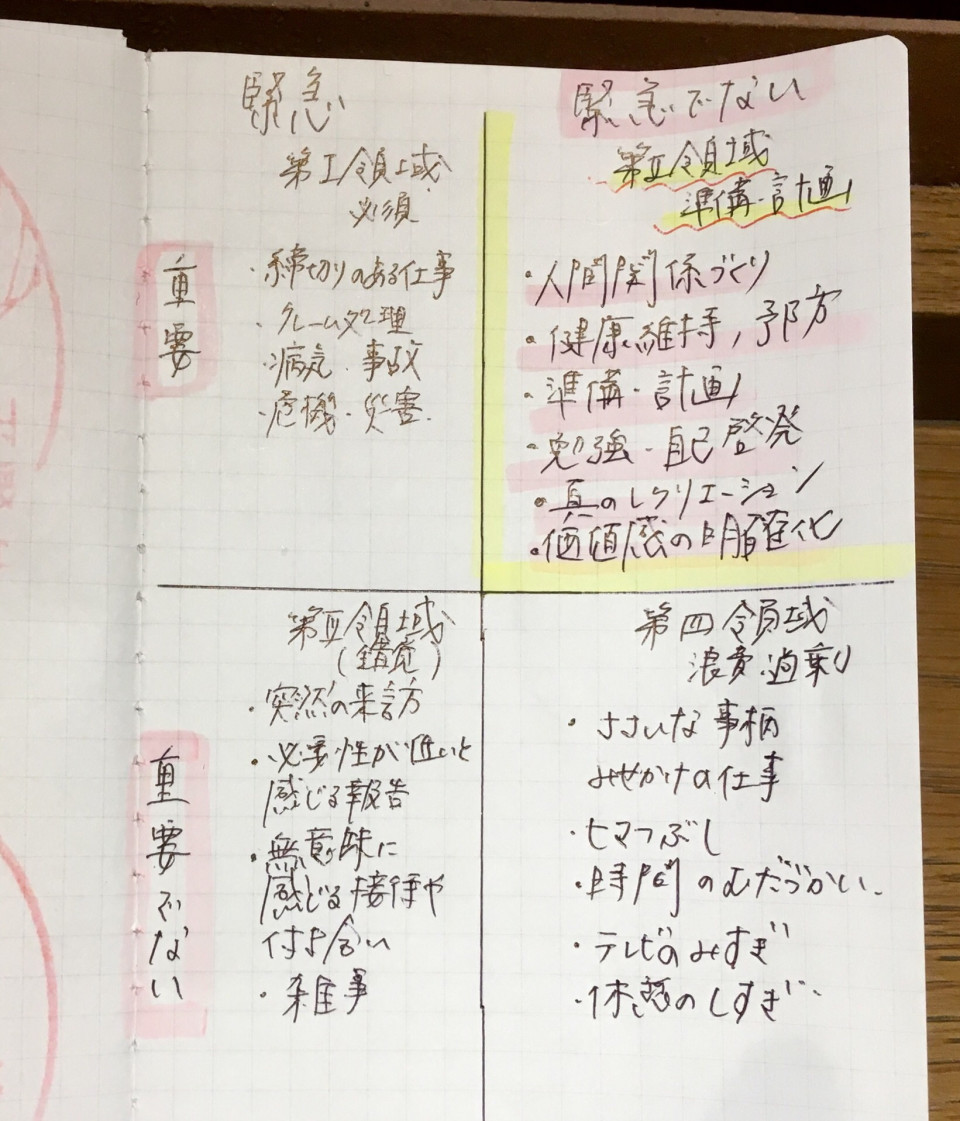 緊急
第I領域
必須
重要
・締切りのある仕事
・クレーム処理
・病気・事故
・危機・災害
緊急でない
第II領域
準備・計画
・人間関係づくり
・健康維持,予防
・準備・計画
・勉強・自己啓発
・真のレクリエーション
・価値感の明確化
重要でない
第III領域
(錯覚)
・突然の来訪
・必要性が低いと
感じる報告
・無意味に
感じる接待や
付き合い
・雑事
第四領域
浪費・過剰
・ささいな事柄
みせかけの仕事
・ヒマつぶし
・時間のむだづかい
・テレビのみすぎ
・休憩のしすぎ